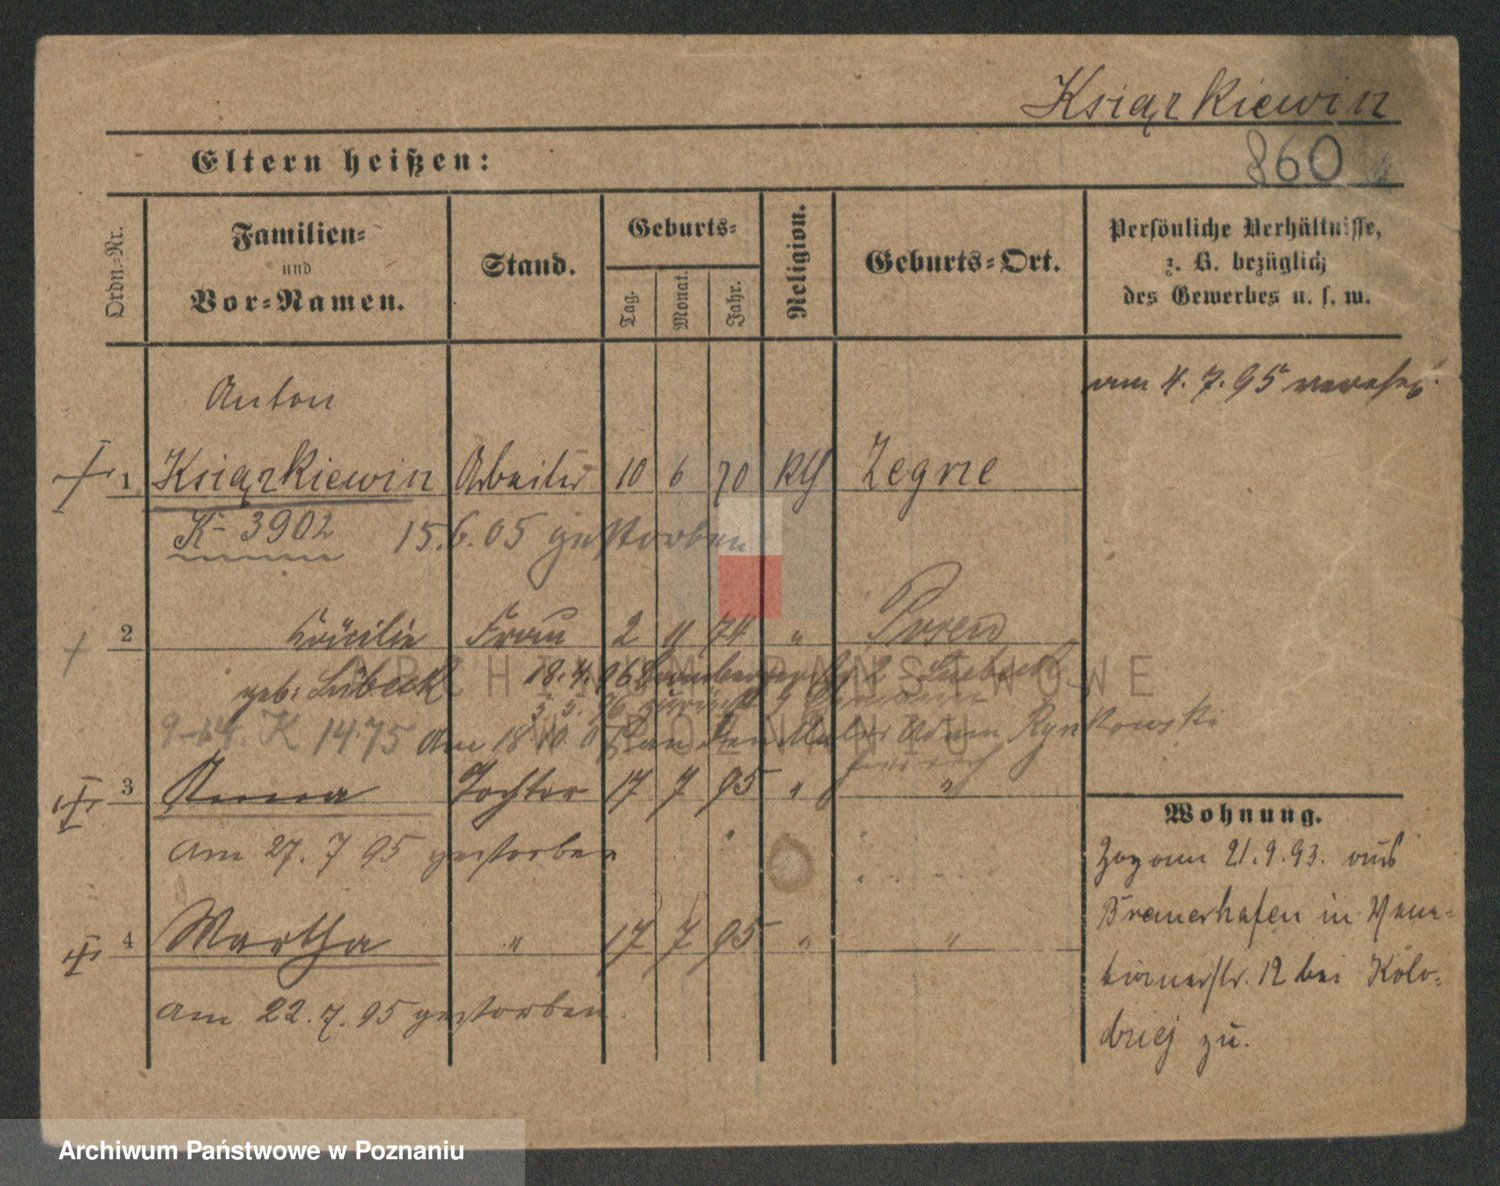 Książkiewicz
Eltern heißen:
860
Ordn.-Nr.
Familien-
und
Vor-Namen.
Stand.
Geburts-
Tag.
Monat.
Jahr.
Religion.
Geburts-Ort.
Persönliche Verhältnisse,
z. B. bezüglich
des Gewerbes u. s. w.
Anton
am 4. 7. 95
I 1 Książkiewicz Arbeiter 10 6 70 Kth Zegrze
K- 3902 15.6.05 gestorben
2 Cäcilie Frau 2 11 74 " Posen
geb: Lübeck 18.4.06
5.5.06 zurück
9-14. K 1475 Am 18 10 den Maler Adam Rynkowski
3 Anna Tochter 17 7 95 " "
am 27. 7 95 gestorben
4 Martha " 17 7 95 " "
am 22. 7. 95 gestorben.
Wohnung.
Zog am 21.9.93. aus
Bremerhafen in
12 bei Kolo-
dziej zu.
ARCHIWUM PAŃSTWOWE
W POZNANIU
Archiwum Państwowe w Poznaniu